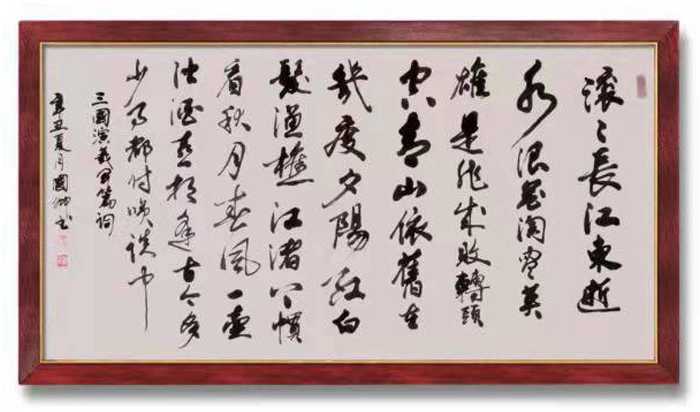 滚々長江東逝
水浪花淘尽英
雄是非成敗轉頭
空青山依舊在
幾度夕陽紅白
髮漁樵江渚上慣
看秋月春風一壶
浊酒喜相逢古今多
少事都付笑談中
三國演義开篇詞
辛丑夏月國书